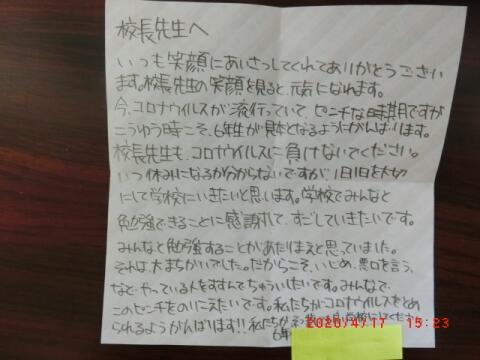 校長先生へ
いつも笑顔にあいさつしてくれてありがとうござい
ます。校長先生の笑顔を見ると、元気になれます。
今、コロナウイルスが流行っていて、ピンチな時期ですが
こうゆう時こそ、6年生が見本となるようにがんばります。
校長先生も、コロナウイルスに負けないでください。
いつ休みになるか分からないですが、1日1日を大切
にして学校にいきたいと思います。学校でみんなと
勉強できることに感謝して、すごしていきたいです。
みんなと勉強することがあたりまえと思っていました。
それは、大まちがいでした。だからこそ、いじめ、悪口を言う、
など、やっている人をすすんでちゅういしたいです。みんなで、
このピンチをのりこえたいです。私たちがコロナウイルスをとめ
られるようがんばります!!私たちが
6年
2020/4/17 15:23